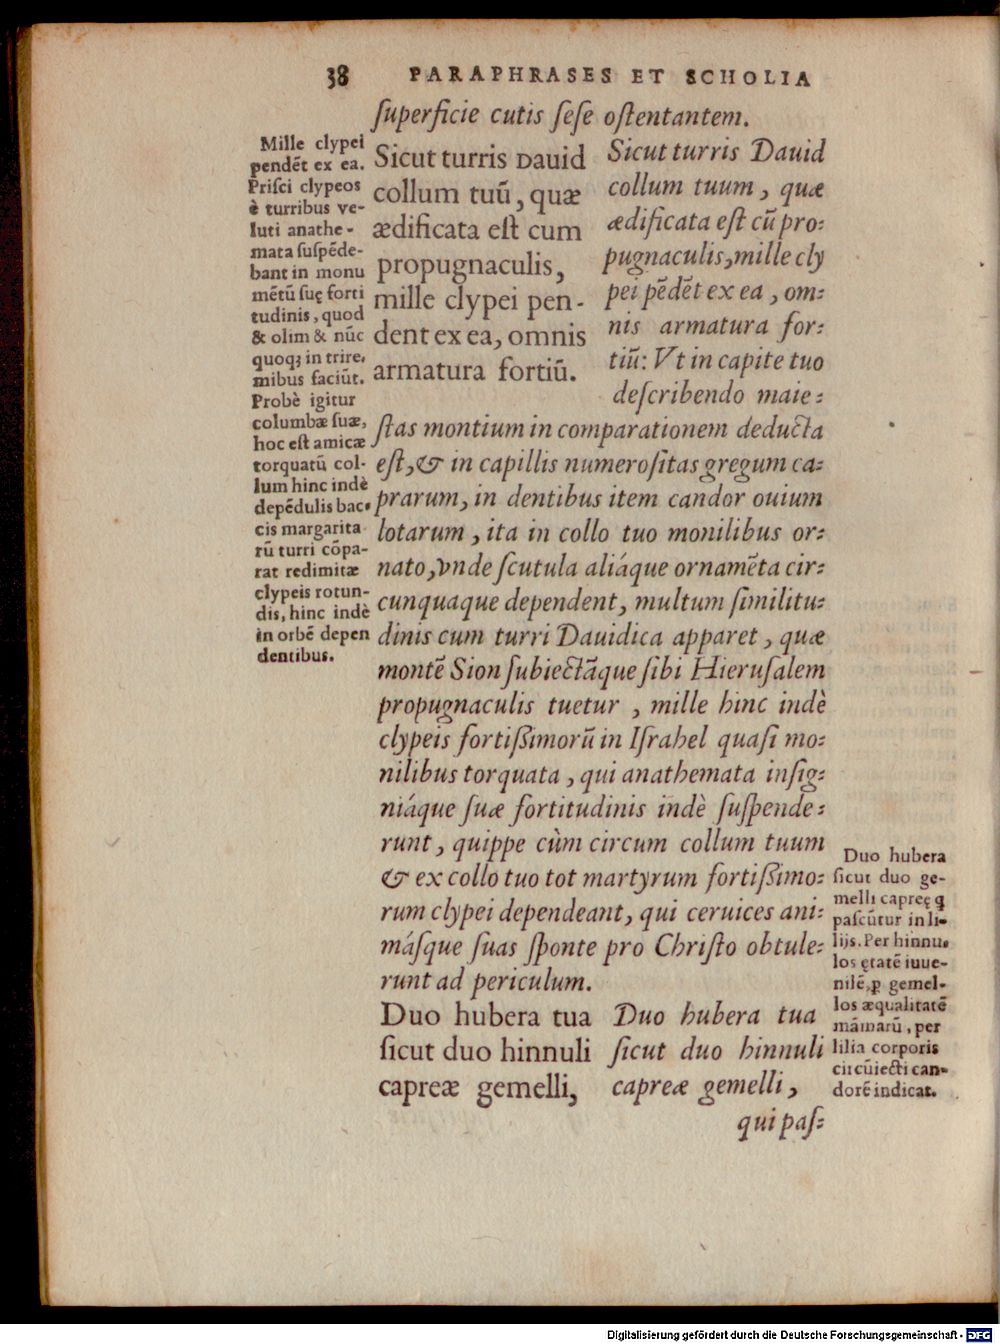 38 PARAPHRASES ET SCHOLIA
superficie cutis sese ostentantem.
Mille clypei
pendēt ex ea.
Prisci clypeos
è turribus ve-
luti anathe-
mata suspēde-
bant in monu
mētū suę forti
tudinis, quod
& olim & nūc
quoqꝫ in trire,
mibus faciūt.
Probè igitur
columbæ suæ,
hoc est amicæ
torquatū col-
lum hinc indè
depēdulis bac-
cis margarita
rū turri cōpa-
rat redimitæ
clypeis rotun-
dis, hinc indè
in orbē depen
dentibus.
Sicut turris Dauid
collum tuū, quæ
ædificata est cum
propugnaculis,
mille clypei pen-
dent ex ea, omnis
armatura fortiū.
Sicut turris Dauid
collum tuum, quæ
ædificata est cū pro:
pugnaculis, mille cly
pei pēdēt ex ea, om:
nis armatura for:
tiū: Vt in capite tuo
describendo maie:
stas montium in comparationem deducta
est, & in capillis numerositas gregum ca:
prarum, in dentibus item candor ouium
lotarum, ita in collo tuo monilibus or:
nato, vnde scutula aliáque ornamēta cir:
cunquaque dependent, multum similitu:
dinis cum turri Dauidica apparet, quæ
montē Sion subiectāque sibi Hierusalem
propugnaculis tuetur, mille hinc indè
clypeis fortißimorū in Israhel quasi mo:
nilibus torquata, qui anathemata insig:
niáque suæ fortitudinis indè suspende:
runt, quippe cùm circum collum tuum
& ex collo tuo tot martyrum fortißimo:
rum clypei dependeant, qui ceruices ani:
másque suas sponte pro Christo obtule:
runt ad periculum.
Duo hubera tua
sicut duo hinnuli
capreæ gemelli,
Duo hubera tua
sicut duo hinnuli
capreæ gemelli,
qui pas:
Duo hubera
sicut duo ge-
melli capreę q̄
pascūtur in li-
lijs. Per hinnu-
los ętatē iuue-
nilē, ꝑ gemel-
los æqualitatē
māmarū, per
lilia corporis
circūiecti can-
dorē indicat.
Digitalisierung gefördert durch die Deutsche Forschungsgemeinschaft - DFG